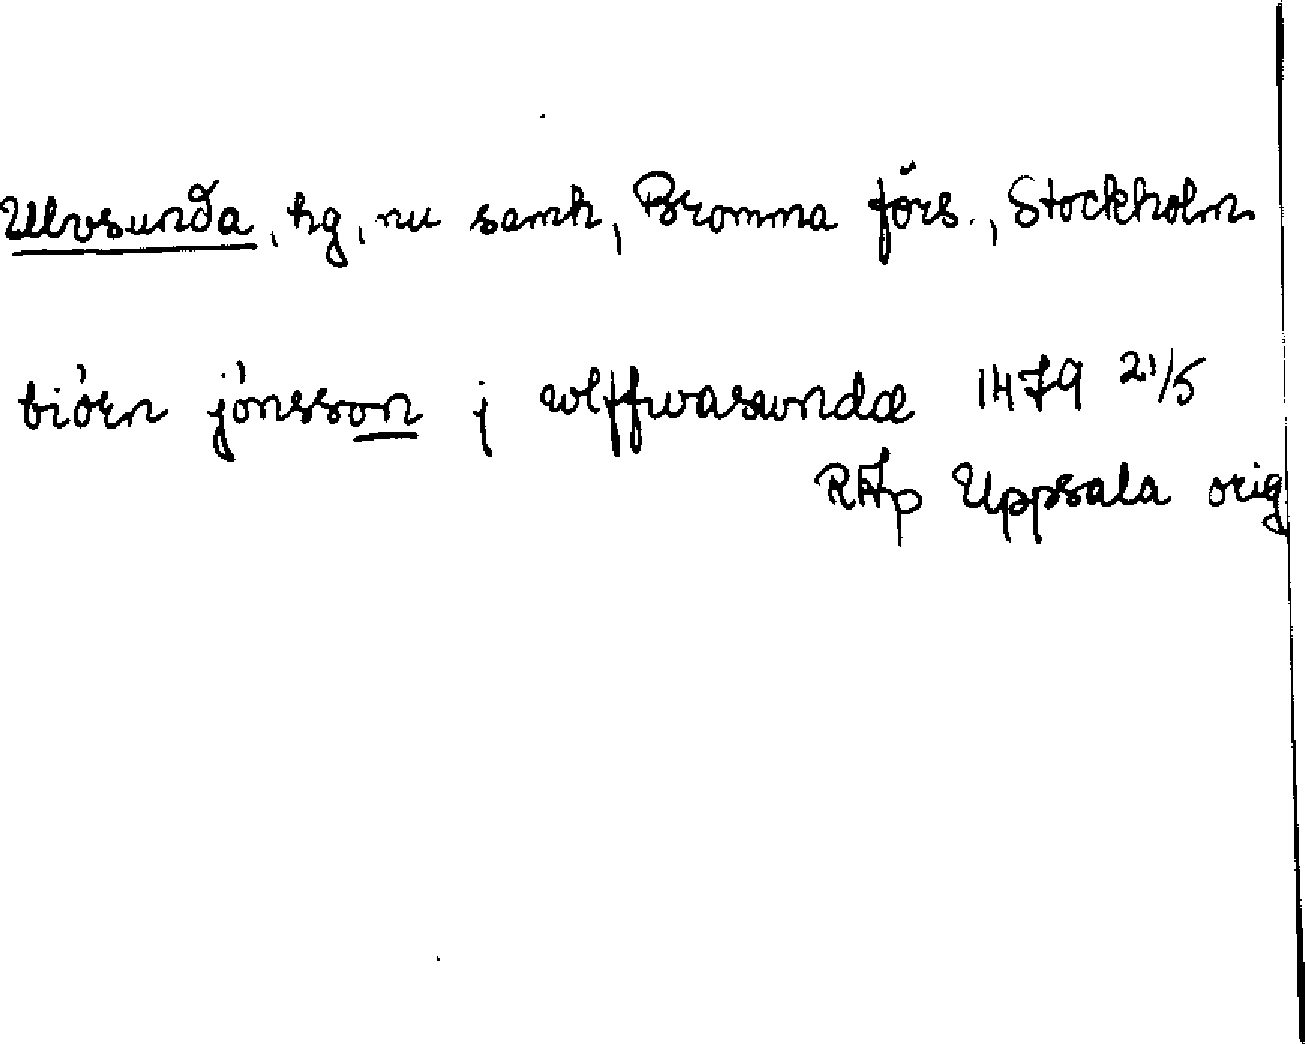 Ulvsunda, hg, nu samh, Bromma förs., Stockholm
biórn jónsson j wlffwasundæ 1479 21/5
RAp Uppsala orig